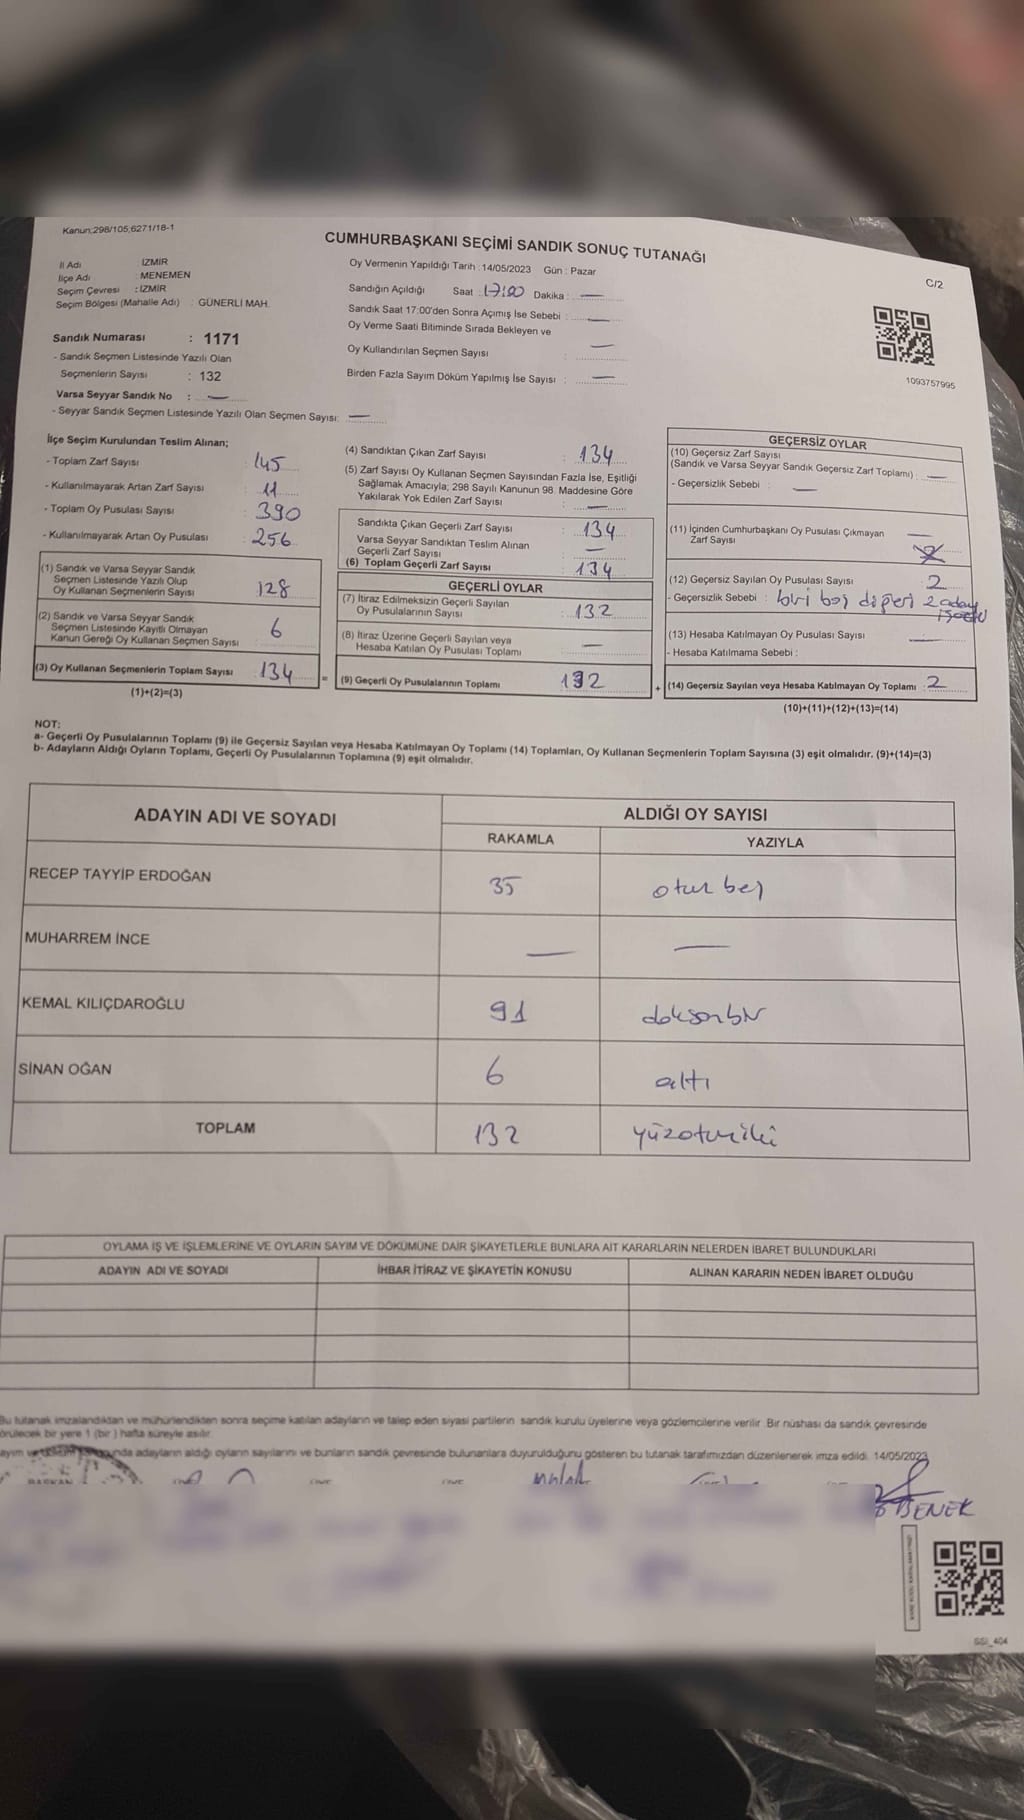 Kanun;298/105;6271/18-1
CUMHURBAŞKANI SEÇİMİ SANDIK SONUÇ TUTANAĞI
C/2
İl Adı İZMİR
İlçe Adı : MENEMEN
Seçim Çevresi : İZMİR
Seçim Bölgesi (Mahalle Adı) : GÜNERLİ MAH.
Oy Vermenin Yapıldığı Tarih : 14/05/2023 Gün : Pazar
Sandığın Açıldığı Saat : 17:00 Dakika : —
Sandık Saat 17:00'den Sonra Açımış İse Sebebi : —
Oy Verme Saati Bitiminde Sırada Bekleyen ve
Oy Kullandırılan Seçmen Sayısı : —
Birden Fazla Sayım Döküm Yapılmış İse Sayısı : —
1093757995
Sandık Numarası : 1171
- Sandık Seçmen Listesinde Yazılı Olan
Seçmenlerin Sayısı : 132
Varsa Seyyar Sandık No : —
- Seyyar Sandık Seçmen Listesinde Yazılı Olan Seçmen Sayısı: —
İlçe Seçim Kurulundan Teslim Alınan;
- Toplam Zarf Sayısı : 145
- Kullanılmayarak Artan Zarf Sayısı : 11
- Toplam Oy Pusulası Sayısı : 390
- Kullanılmayarak Artan Oy Pusulası : 256
(1) Sandık ve Varsa Seyyar Sandık
Seçmen Listesinde Yazılı Olup
Oy Kullanan Seçmenlerin Sayısı : 128
(2) Sandık ve Varsa Seyyar Sandık
Seçmen Listesinde Kayıtlı Olmayan
Kanun Gereği Oy Kullanan Seçmen Sayısı : 6
(3) Oy Kullanan Seçmenlerin Toplam Sayısı : 134
(1)+(2)=(3)
=
(4) Sandıktan Çıkan Zarf Sayısı : 134
(5) Zarf Sayısı Oy Kullanan Seçmen Sayısından Fazla İse, Eşitliği
Sağlamak Amacıyla; 298 Sayılı Kanunun 98. Maddesine Göre
Yakılarak Yok Edilen Zarf Sayısı : —
Sandıkta Çıkan Geçerli Zarf Sayısı : 134
Varsa Seyyar Sandıktan Teslim Alınan
Geçerli Zarf Sayısı : —
(6) Toplam Geçerli Zarf Sayısı : 134
GEÇERLİ OYLAR
(7) İtiraz Edilmeksizin Geçerli Sayılan
Oy Pusulalarının Sayısı : 132
(8) İtiraz Üzerine Geçerli Sayılan veya
Hesaba Katılan Oy Pusulası Toplamı : —
(9) Geçerli Oy Pusulalarının Toplamı : 132
+
GEÇERSİZ OYLAR
(10) Geçersiz Zarf Sayısı
(Sandık ve Varsa Seyyar Sandık Geçersiz Zarf Toplamı) : —
- Geçersizlik Sebebi : —
(11) İçinden Cumhurbaşkanı Oy Pusulası Çıkmayan —
Zarf Sayısı :
(12) Geçersiz Sayılan Oy Pusulası Sayısı : 2
- Geçersizlik Sebebi : biri boş diğeri 2 aday
(13) Hesaba Katılmayan Oy Pusulası Sayısı : —
- Hesaba Katılmama Sebebi :
(14) Geçersiz Sayılan veya Hesaba Katılmayan Oy Toplamı : 2
(10)+(11)+(12)+(13)=(14)
NOT:
a- Geçerli Oy Pusulalarının Toplamı (9) ile Geçersiz Sayılan veya Hesaba Katılmayan Oy Toplamı (14) Toplamları, Oy Kullanan Seçmenlerin Toplam Sayısına (3) eşit olmalıdır. (9)+(14)=(3)
b- Adayların Aldığı Oyların Toplamı, Geçerli Oy Pusulalarının Toplamına (9) eşit olmalıdır.
ADAYIN ADI VE SOYADI ALDIĞI OY SAYISI
RAKAMLA YAZIYLA
RECEP TAYYİP ERDOĞAN 35 otuz beş
MUHARREM İNCE — —
KEMAL KILIÇDAROĞLU 91 doksanbir
SİNAN OĞAN 6 altı
TOPLAM 132 yüzotuziki
OYLAMA İŞ VE İŞLEMLERİNE VE OYLARIN SAYIM VE DÖKÜMÜNE DAİR ŞİKAYETLERLE BUNLARA AİT KARARLARIN NELERDEN İBARET BULUNDUKLARI
ADAYIN ADI VE SOYADI İHBAR İTİRAZ VE ŞİKAYETİN KONUSU ALINAN KARARIN NEDEN İBARET OLDUĞU
Bu tutanak imzalandıktan ve mühürlendikten sonra seçime katılan adayların ve talep eden siyasi partilerin sandık kurulu üyelerine veya gözlemcilerine verilir. Bir nüshası da sandık çevresinde
örülecek bir yere 1 (bir ) hafta süreyle asılır.
adayların aldığı oyların sayılarını ve bunların sandık çevresinde bulunanlara duyurulduğunu gösteren bu tutanak tarafımızdan düzenlenerek imza edildi. 14/05/2023
BENEK
SSİ_404